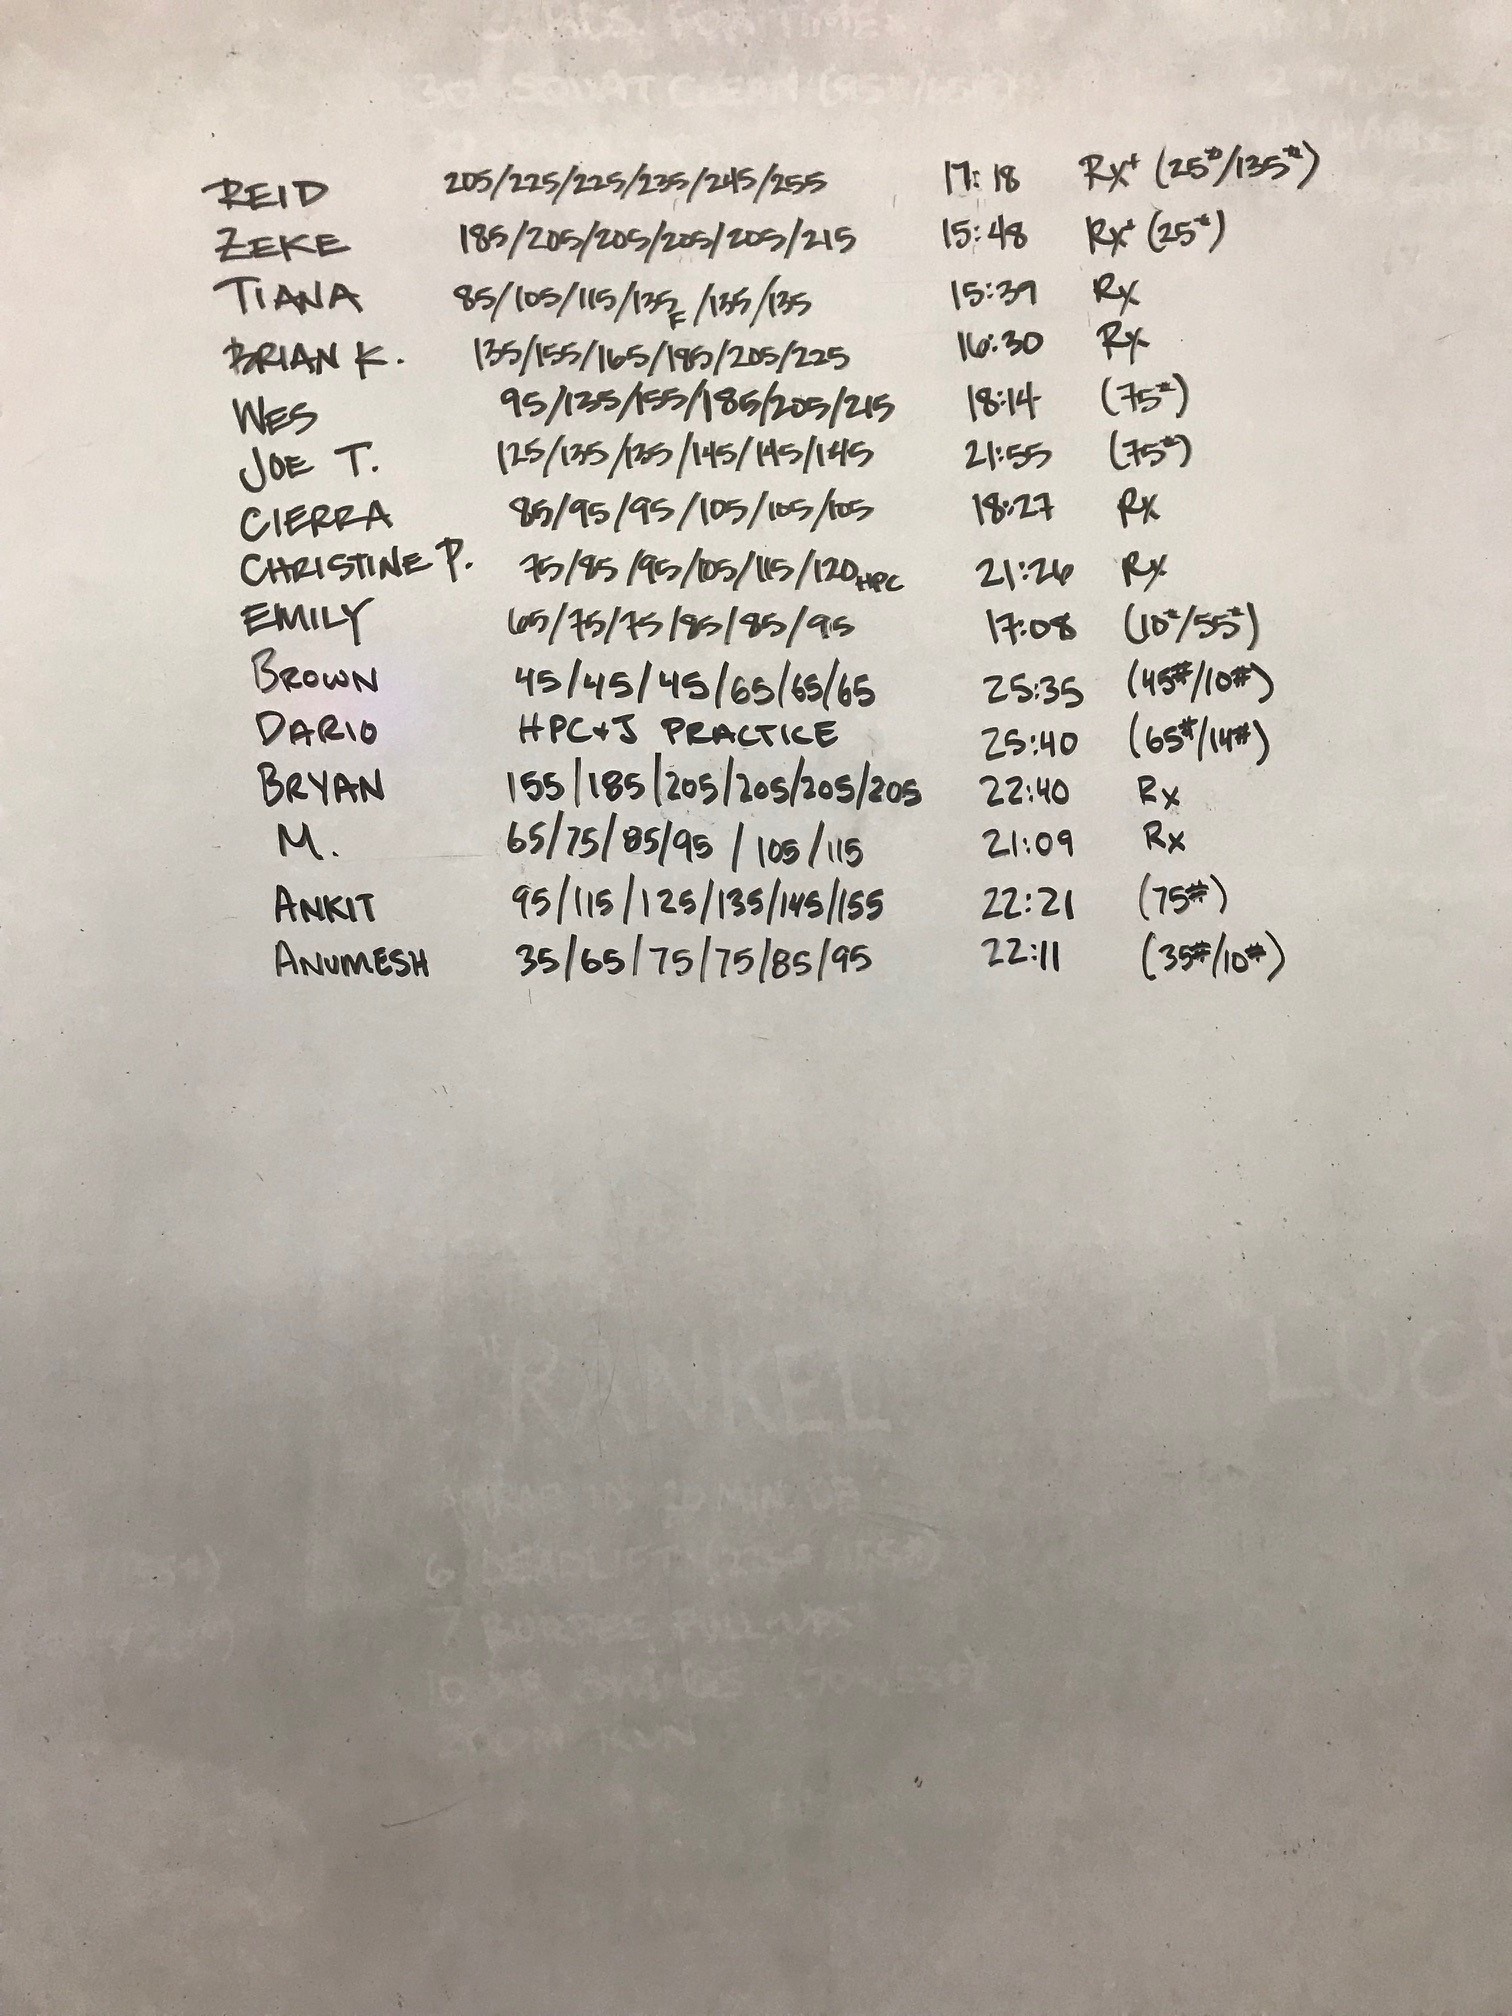 30 SQUAT CLEAN
REID 205/225/225/235/245/255 17:18 Rx+ (25#/135#)
ZEKE 185/205/205/205/205/215 15:48 Rx+ (25#)
TIANA 85/105/115/135F/135/135 15:39 Rx
BRIAN K. 135/155/165/185/205/225 16:30 Rx
WES 95/135/155/185/205/215 18:14 (75#)
JOE T. 125/135/135/145/145/145 21:55 (75#)
CIERRA 85/95/95/105/105/105 18:27 Rx
CHRISTINE P. 75/85/95/105/115/120HPC 21:26 Rx
EMILY 65/75/75/85/85/95 17:08 (10#/55#)
BROWN 45/45/45/65/65/65 25:35 (45#/10#)
DARIO HPC+J PRACTICE 25:40 (65#/14#)
BRYAN 155/185/205/205/205/205 22:40 Rx
M. 65/75/85/95/105/115 21:09 Rx
ANKIT 95/115/125/135/145/155 22:21 (75#)
ANUMESH 35/65/75/75/85/95 22:11 (35#/10#)
"RANKEL" LUC
AMRAP IN 20 MIN OF
6 DEADLIFT
7 BURPEE PULL-UPS
10 KB SWINGS
200M RUN